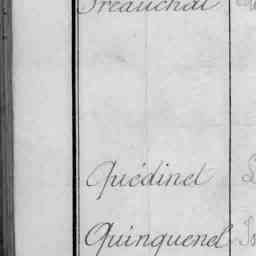 Préauchat
Quédinet
Quinquenel